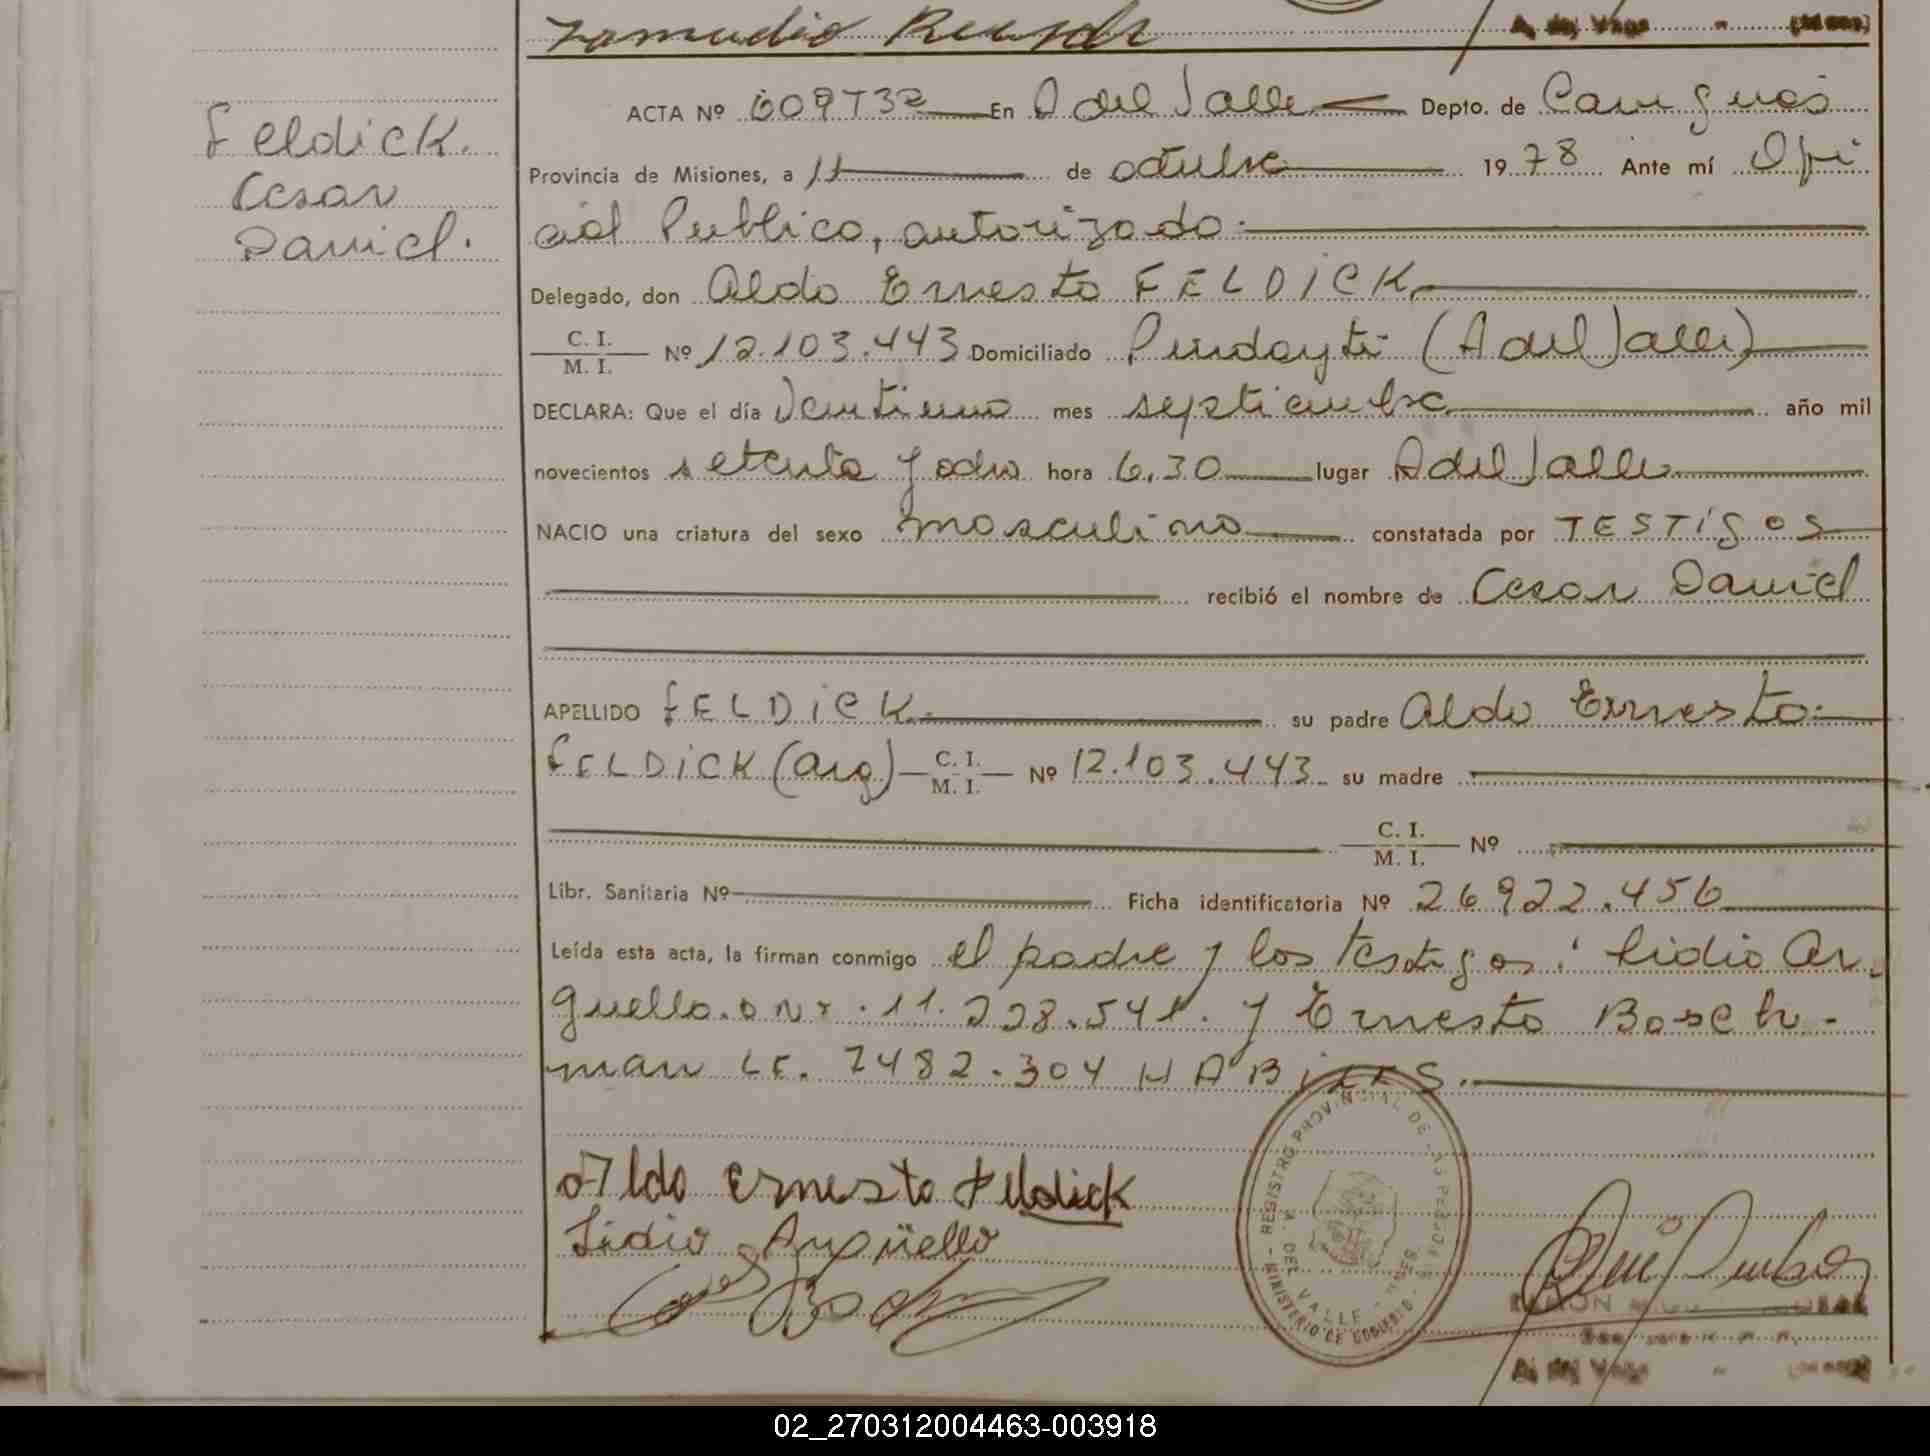 Zamudio
Feldick.
Cesar
Daniel.
ACTA Nº 609732 En A del Valle Depto. de Cainguás
Provincia de Misiones, a 11 de octubre 1978 Ante mí Ofi
cial Publico, autorizado.
Delegado, don Aldo Ernesto FELDICK,
C. I.
M. I. Nº 12.103.443 Domiciliado Pindayti (A del Valle)
DECLARA: Que el día Veintiuno mes septiembre año mil
novecientos setenta y ocho hora 6,30 lugar A del Valle
NACIO una criatura del sexo masculino constatada por TESTIGOS
recibió el nombre de Cesar Daniel
APELLIDO FELDICK. su padre Aldo Ernesto
FELDICK (Arg) C. I. M. I. Nº 12.103.443 su madre
C. I.
M. I. Nº
Libr. Sanitaria Nº Ficha identificatoria Nº 26922.456
Leída esta acta, la firman conmigo el padre y los testigos: Lidio Ar
guello. DNI. 11.228.541. y Ernesto Bosch-
man LE. 7482.304 HABILES.
Aldo Ernesto Feldick
Lidio Argüello
REGISTRO PROVINCIAL DE LAS PERSONAS
A. DEL VALLE - MNES.
MINISTERIO DE GOBIERNO
02_270312004463-003918